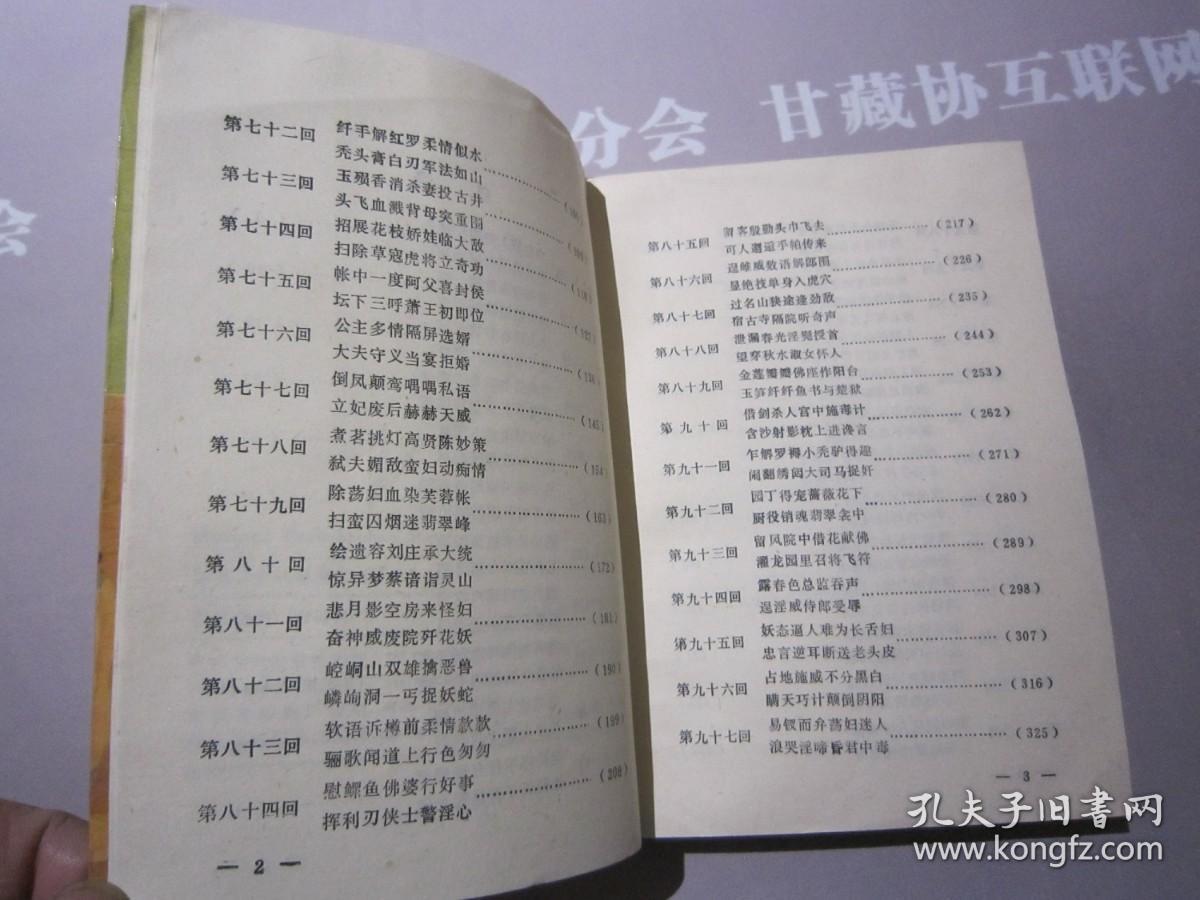 分会 甘藏协互联网
会
第七十二回 纤手解红罗柔情似水
秃头膏白刃军法如山
第七十三回 玉殒香消杀妻投古井
头飞血溅背母突重围
第七十四回 招展花枝娇娃临大敌
扫除草寇虎将立奇功
第七十五回 帐中一度阿父喜封侯
坛下三呼萧王初即位
第七十六回 公主多情隔屏选婿
大夫守义当宴拒婚
第七十七回 倒凤颠鸾喁喁私语 (145)
立妃废后赫赫天威
第七十八回 煮茗挑灯高贤陈妙策 (154)
弑夫媚敌蛮妇动痴情
第七十九回 除荡妇血染芙蓉帐 (163)
扫蛮囚烟迷翡翠峰
第八十回 绘遗容刘庄承大统 (172)
惊异梦蔡谙诣灵山
第八十一回 悲月影空房来怪妇 (181)
奋神威废院歼花妖
第八十二回 崆峒山双雄擒恶兽 (190)
嶙峋洞一丐捉妖蛇
第八十三回 软语诉樽前柔情款款 (199)
骊歌闻道上行色匆匆
第八十四回 慰鳏鱼佛婆行好事 (208)
挥利刃侠士警淫心
— 2 —
第八十五回 留客殷勤头巾飞去 (217)
可人邂逅手帕传来
第八十六回 逞雌威数语解郎围 (226)
显绝技单身入虎穴
第八十七回 过名山狭途逢劲敌 (235)
宿古寺隔院听奇声
第八十八回 泄漏春光淫髡授首 (244)
望穿秋水淑女怀人
第八十九回 金莲瓣瓣佛座作阳台 (253)
玉笋纤纤鱼书与楚狱
第九十回 借剑杀人宫中施毒计 (262)
含沙射影枕上进谗言
第九十一回 乍解罗襦小秃驴得趣 (271)
闹翻绣闼大司马捉奸
第九十二回 园丁得宠蔷薇花下 (280)
厨役销魂翡翠衾中
第九十三回 留风院中借花献佛 (289)
濯龙园里召将飞符
第九十四回 露春色总监吞声 (298)
逞淫威侍郎受辱
第九十五回 妖态逼人难为长舌妇 (307)
忠言逆耳断送老头皮
第九十六回 占地施威不分黑白 (316)
瞒天巧计颠倒阴阳
第九十七回 易钗而弁荡妇迷人 (325)
浪哭淫啼昏君中毒
— 3 —
孔夫子旧书网
www.kongfz.com